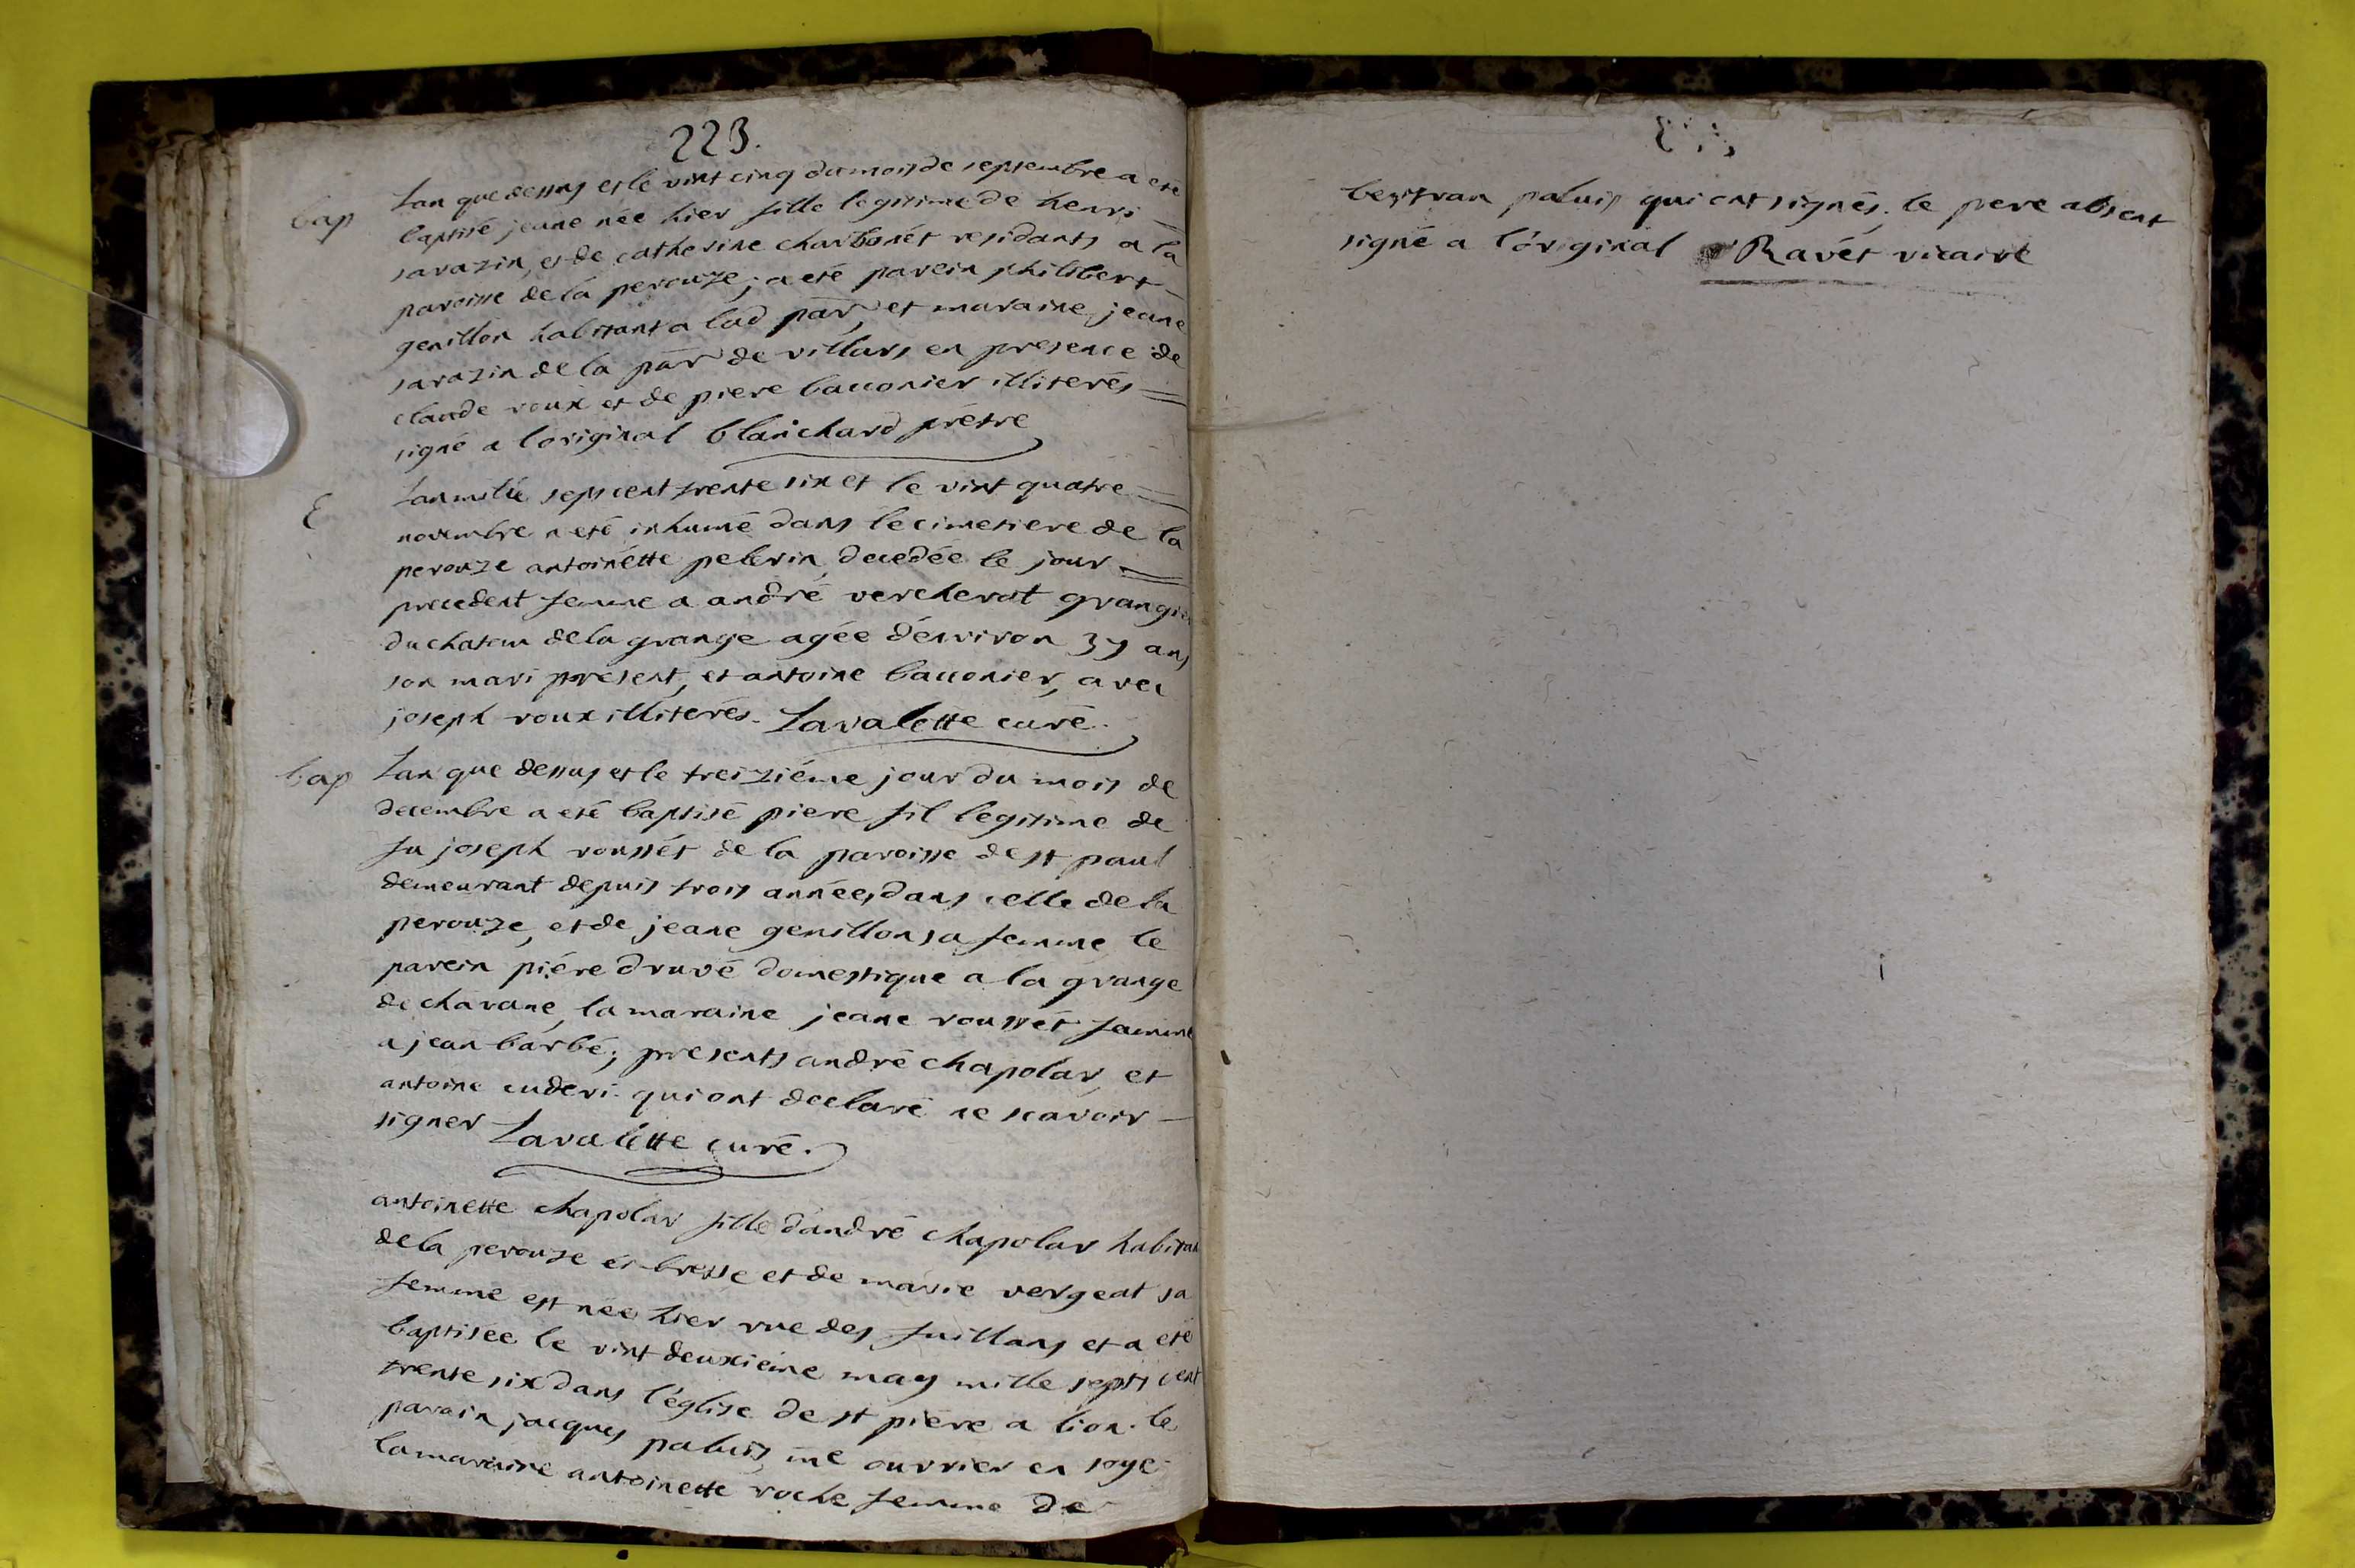 223.
bap
Lan que dessus et le vint cinq du mois de septembre a eté
baptisé jeane née hier fille legitime de henri
sarazin, et de catherine charbonét residants a la
paroisse de la perouze; a eté parein philibert
genillon habitant a lad par et maraine jeane
sarazin de la par de villars en presence de
claude roux et de piere bauonier illiterés
signé a loriginal blanchard prétre
E
Lan mille sept cent trente six et le vint quatre
novembre a eté inhumé dans le cimetiere de la
perouze antoinétte pelerin, decedée le jour
precedent femme a andré vercherat grangier
du chateau de la grange agée d'environ 37 ans
son mari present, et antoine bauonier, avec
joseph roux illiterés. Lavalette curé.
bap
Lan que dessus et le treiziéme jour du mois de
decembre a eté baptisé piere fil legitime de
fu joseph roussét de la paroisse de st paul
demeurant depuis trois années dans celle de la
perouze, et de jeane genillon sa femme, le
parein piére druvé domestique a la grange
de chavane, la maraine jeane roussét femme
a jean barbé; presents andré chapolar, et
antoine cuderi qui ont declaré ne scavoir
signer Lavalétte curé.
antoinette chapolar fille d'andré chapolar habitan
de la perouze en bresse et de marie vergeat sa
femme est née hier rue des fuillans et a eté
baptisée le vint deuxieme may mille sept cent
trente six dans l'église de st piére a lion. le
parain jacques paluis me ouvrier en soye
la maraine antoinette roche femme de
bertran paluis qui ont signés. le pere absent
signé a l'original Ravét vicaire